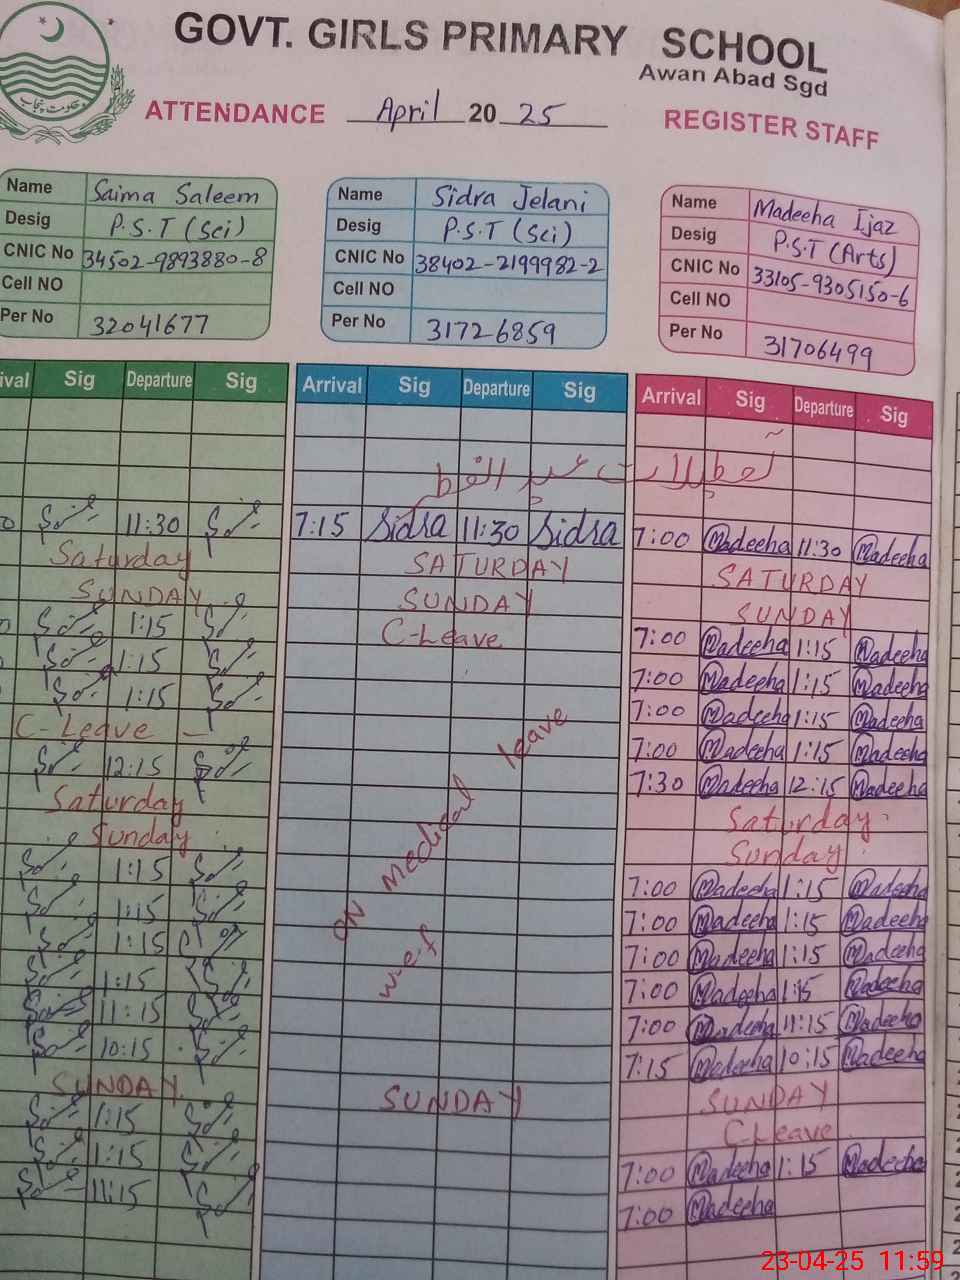 GOVT. GIRLS PRIMARY SCHOOL
Awan Abad Sgd
حکومت پنجاب
ATTENDANCE April 20 25 REGISTER STAFF
Name Saima Saleem
Desig P.S.T (Sci)
CNIC No 34502-9893880-8
Cell NO
Per No 32041677
Name Sidra Jelani
Desig P.S.T (Sci)
CNIC No 38402-2199982-2
Cell NO
Per No 31726859
Name Madeeha Ijaz
Desig P.S.T (Arts)
CNIC No 33105-9305150-6
Cell NO
Per No 31706499
ival Sig Departure Sig
11:30
Saturday
SUNDAY
1:15
1:15
1:15
C-Leave
12:15
Saturday
Sunday
1:15
1:15
1:15
1:15
11:15
10:15
SUNDAY
1:15
1:15
11:15
Arrival Sig Departure Sig
تعطیلات عید الفطر
7:15 Sidra 11:30 Sidra
SATURDAY
SUNDAY
C-Leave
ON Medical leave
w.e.f
SUNDAY
Arrival Sig Departure Sig
7:00 Madeeha 11:30 Madeeha
SATURDAY
SUNDAY
7:00 Madeeha 1:15 Madeeha
7:00 Madeeha 1:15 Madeeha
7:00 Madeeha 1:15 Madeeha
7:00 Madeeha 1:15 Madeeha
7:30 Madeeha 12:15 Madeeha
Saturday
Sunday
7:00 Madeeha 1:15 Madeeha
7:00 Madeeha 1:15 Madeeha
7:00 Madeeha 1:15 Madeeha
7:00 Madeeha 1:15 Madeeha
7:00 Madeeha 11:15 Madeeha
7:15 Madeeha 10:15 Madeeha
SUNDAY
C-Leave
7:00 Madeeha 1:15 Madeeha
7:00 Madeeha
23-04-25 11:59